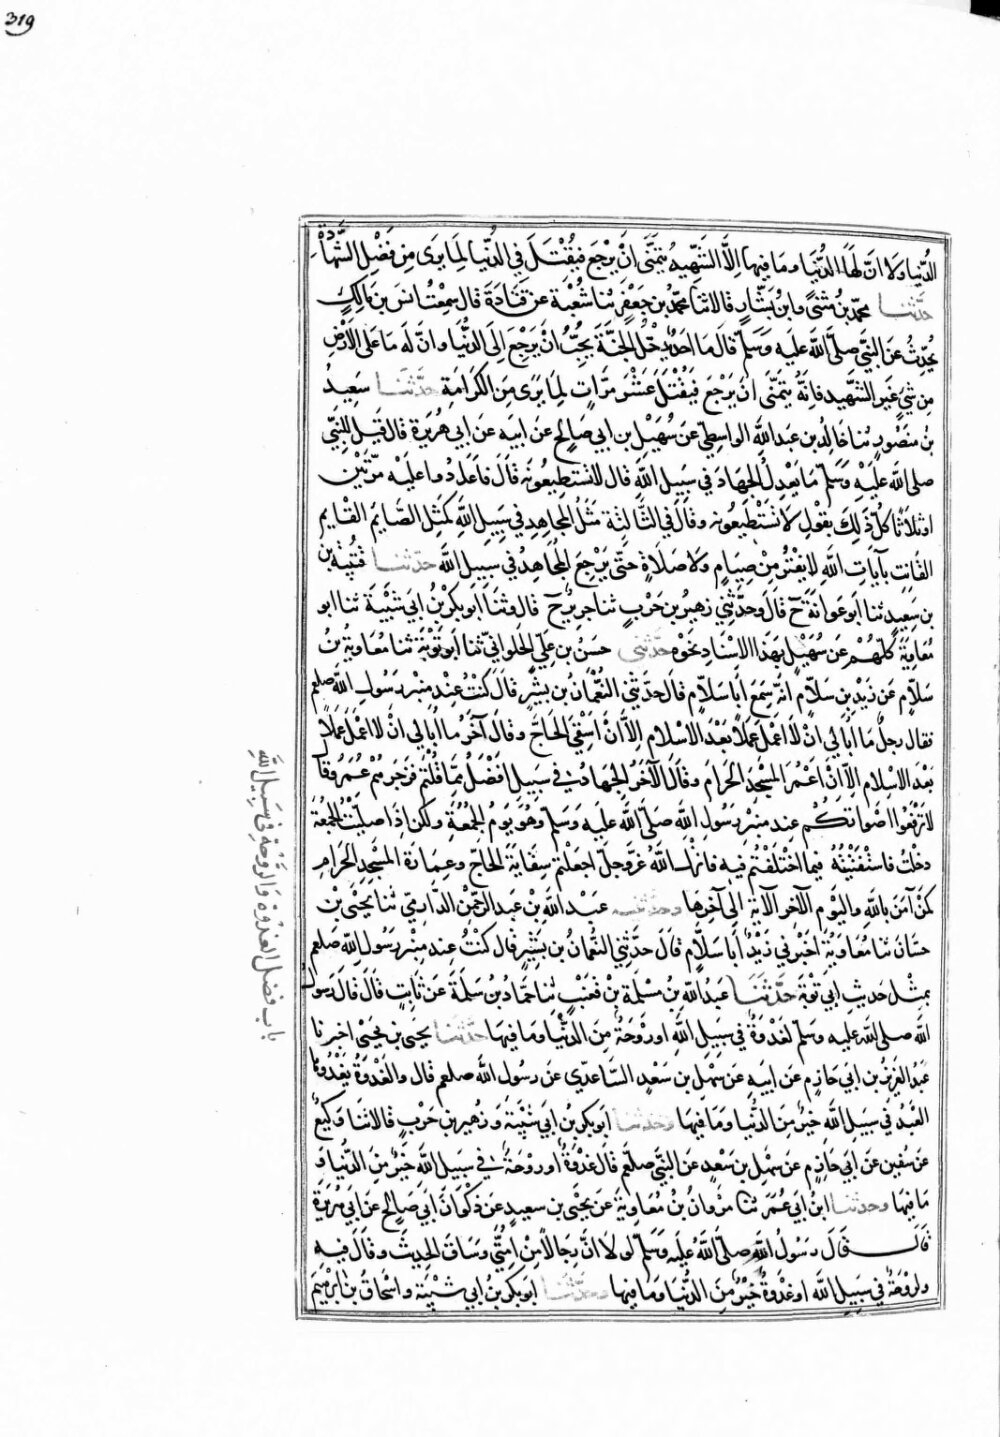 319
الدُّنْيَا ولا انَّ لَهَا الدُّنْيَا وما فيها إلَّا الشَّهِيدُ يتمَنَّى أنْ يَرْجَعَ فيُقْتَلَ في الدُّنْيا لِمَا يرَى مِن فَضْلِ الشَّهَادَةِ
حدّثنا محمّد بن مثنى وابن بشّارٍ قالا ثنا محمّد بن جَعْفَرٍ ثنا شُعْبَة عن قتادَةَ قال سمعْتُ انسَ بن مالِكٍ
يُحدّثُ عن النبيّ صلّى الله عليه وسَلّم قال ما احدٌ يدخُلُ الجنَّةَ يحِبُّ ان يرْجعَ الى الدُّنْيا وانّ له ما على الارْضِ
من شيءٍ غير الشَّهيد فانّه يتمنّى ان يَرْجِعَ فيُقْتَلَ عَشْرَ مرّاتٍ لِمَا يرَى مِنَ الكرَامَةِ حدّثنا سَعِيدُ
بن منصُورٍ ثنا خالِدُ بن عبد اللهِ الواسِطيّ عن سُهَيْل بن ابي صالحٍ عن ابيه عن ابي هريرة قال قيلَ للنبيّ
صلى الله عليْهِ وسَلّم ما يعْدِلُ الجهادَ في سبيل اللهِ قال لا تستطيعونه قال فاعادُوا عليْه مرّتَيْن
او ثلاثًا كلّ ذلِكَ يقولُ لا تَسْتَطيعُونه وقال في الثّالِثة مَثَلُ المجاهِدِ في سَبيل اللهِ كمثل الصّايم القايم
القانت بآيات اللهِ لا يفتُرُ مِنْ صِيَامٍ ولا صلاةٍ حتّى يرْجعَ المجاهدُ في سبيل اللهِ حدّثنا قتيبة بن
بن سعيدٍ ثنا ابو عوانة ح قال وحدّثني زهير بن حَربٍ ثنا جريرٌ ح قال وثنا ابو بكر بنُ ابي شَيْبة ثنا ابو
مُعَاوِيةَ كلّهُمْ عن سُهَيْل بهَذا الاسْنادِ نحوه حدّثني حسَنُ بن عليّ الحلواني ثنا ابو تَوْبَة ثنا مُعَاوية بنُ
سَلّامٍ عن زيد بن سلّامٍ انّه سَمِعَ ابا سلّامٍ قال حدّثني النّعْمانُ بن بشيرٍ قال كنتُ عند منبر رسولِ الله صلعم
فقال رجلٌ ما اُبالي انْ لا اعْمَلَ عَمَلًا بَعْدَ الاسْلام اِلّا انْ اسْقِيَ الحَاجَّ وقال آخر ما اُبالي انْ لا اعْمَلَ عَمَلًا
بعْدَ الاسْلامِ اِلّا انْ اعْمُرَ المسْجِدَ الحَرامَ وقال الآخر الجِهادُ في سبيل افْضَلُ مِمّا قُلْتُم فزجرهُمْ عُمَرُ وقال
لا تَرْفعُوا اصْواتَكُم عند منبر رَسُولِ اللهِ صلّى اللهُ عليه وسَلم وهُو يومُ الجُمُعَةِ ولكن اِذا صلّيتُ الجُمُعَة
دخَلْتُ فاسْتَفْتَيْتُهُ فيما اخْتَلَفْتُم فيه فانزلَ اللهُ عزّ وجلّ اجعلْتم سِقايَةَ الحَاجّ وعِمَارَةَ المسْجِدِ الحَرامِ
كمَنْ آمَن باللهِ واليَوْمِ الآخر الآية اِلى آخِرِهَا وحدّثنيه عبْد الله بْن عبد الرّحْمن الدّارمِيّ ثنا يحْيَى بْن
حسّان ثنا مُعَاوِيَةُ اخبَرَني زَيْدٌ ابا سَلّام قال حدّثني النُّعْمانُ بن بَشيْرٍ قال كنتُ عند منبْر رسُولِ الله صلعم
بمثْل حَديثِ ابي توْبة حَدَّثنا عبدُ الله بن مَسْلَمة بْن قعنب ثنا حمّادُ بن سَلمَةَ عَن ثابِتٍ قال قال رَسولُ
الله صلى الله عليه وسلّم لَغَدْوَةٌ في سَبيلِ اللهِ اوْ رَوْحَةٌ مِنَ الدُّنْيا وما فيهَا حدّثنا يحيى بن يحْيَى اخبرنا
عبدُ العزيز بن ابي حَازِمٍ عن ابيه عن سَهْل بن سَعْدٍ السَّاعِدي عن رسُول الله صلعم قال والغَدْوةُ يغْدُوها
العَبْدُ في سَبيل الله خيرٌ منَ الدُنيا ومَا فيهَا وحدّثنا ابُو بكرِ بْنُ ابي شَيْبَةَ وَزُهير بن حَرْبٍ قالا ثنا وَكِيعٌ
عن سفين عن ابي حَازِمٍ عن سَهْل بن سَعدٍ عن النبيّ صلعم قال غدْوةٌ او رَوْحَةٌ في سَبيل اللهِ خَيرٌ منَ الدُّنيا وَ
مَا فيهَا وحدثنا ابنُ ابي عُمَرَ ثنا مَرْوانُ بنُ مُعَاويةَ عن يحْيَى بن سعيدٍ عَن ذَكْوانَ ابي صَالحٍ عن ابي هُرَيْرَة
قالَ قَالَ رَسُولُ اللهِ صلّى اللهُ عليْه وسَلّم لولا انّ رِجالًا مِن اُمّتي وسَاقَ الحديثَ وقال فيه
ولرَوْحَةٌ في سَبيلِ اللهِ او غَدْوَةٌ خَيْرٌ مِنَ الدُّنْيَا وَمَا فيها وحدّثنا ابو بَكر بنُ ابي شيبة واسْحاقُ بن ابْرهيم
باب فضل الغدوة والرَّوْحة في سبيل الله